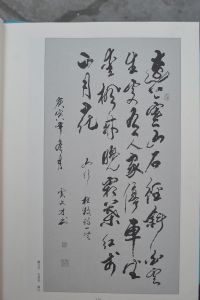 遠上寒山石徑斜白雲
生處有人家停車坐
愛楓林晚霜葉紅於
二月花
山行 杜牧詩一首
庚寅年